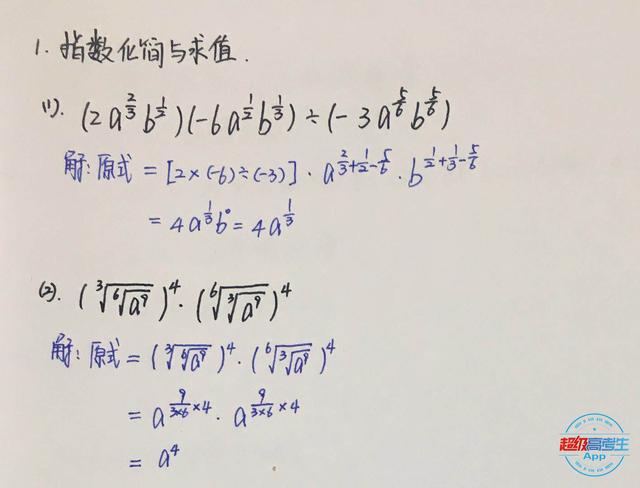 1. 指数化简与求值.
(1). (2a^{2/3}b^{1/2})(-6a^{1/2}b^{1/3})÷(-3a^{5/6}b^{5/6})
解: 原式 = [2×(-6)÷(-3)]·a^{2/3+1/2-5/6}·b^{1/2+1/3-5/6}
= 4a^{1/3}b^0 = 4a^{1/3}
(2). (∛(⁶√(a^9)))^4·(⁶√(∛(a^9)))^4
解: 原式 = (∛(⁶√(a^9)))^4·(⁶√(∛(a^9)))^4
= a^{9/(3×6)×4}·a^{9/(3×6)×4}
= a^4
超级高考生
App